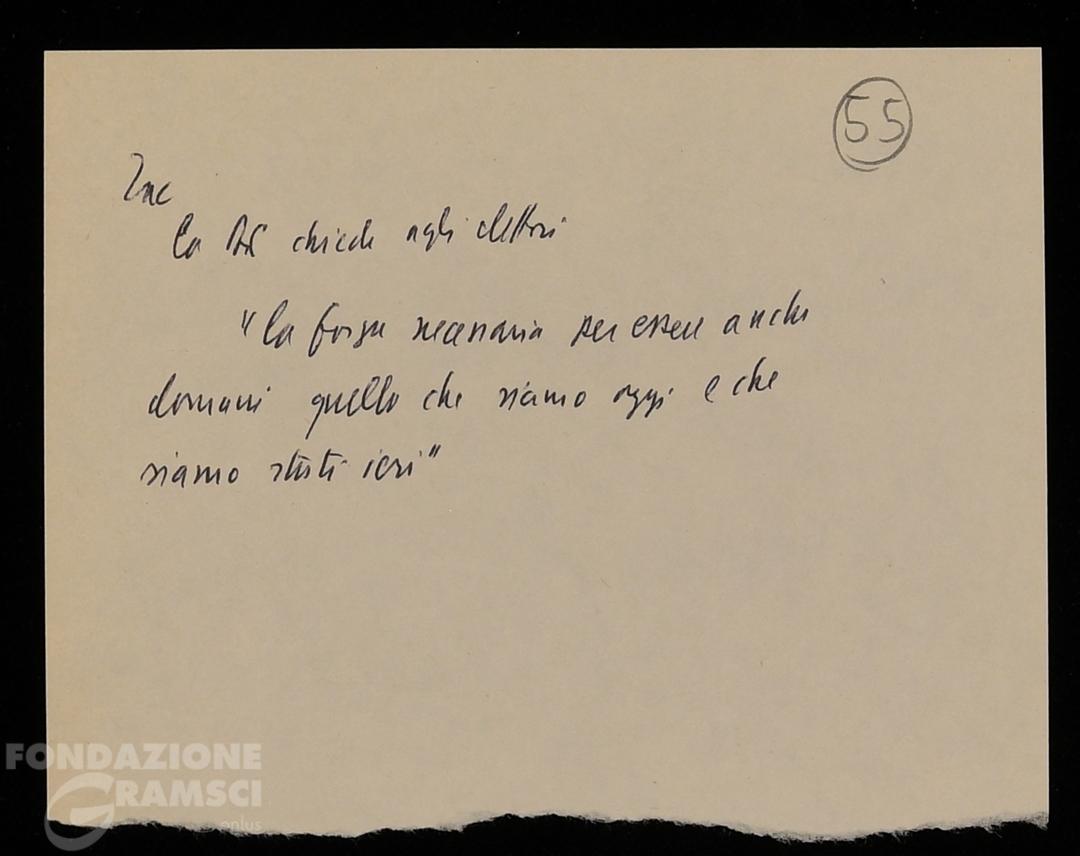 55
Zac
la DC chiede agli elettori
"la forza necessaria per essere anche
domani quello che siamo oggi e che
siamo stati ieri"
FONDAZIONE
GRAMSCI
onlus